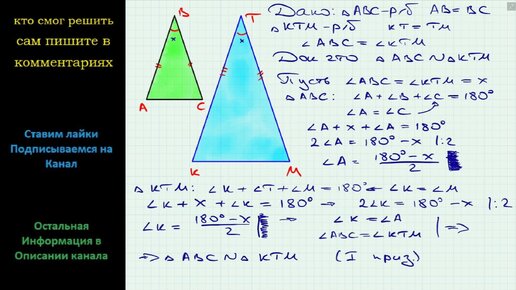 кто смог решить
сам пишите в
комментариях
Ставим лайки
Подписываемся на
Канал
Остальная
Информация в
Описании канала
B
A
C
x
T
x
K
M
Дано: △ABC-р/б AB=BC
△KTM-р/б KT=TM
∠ABC=∠KTM
Док что △ABC ∾ △KTM
Пусть ∠ABC=∠KTM=x
△ABC: ∠A+∠B+∠C=180°
∠A=∠C
∠A+x+∠A=180°
2∠A=180°-x |:2
∠A= (180°-x)/2
△KTM: ∠K+∠T+∠M=180° ∠K=∠M
∠K+x+∠K=180° → 2∠K=180°-x |:2
∠K= (180°-x)/2 → ∠K=∠A
∠ABC=∠KTM | =>
=> △ABC ∾ △KTM (I приз)